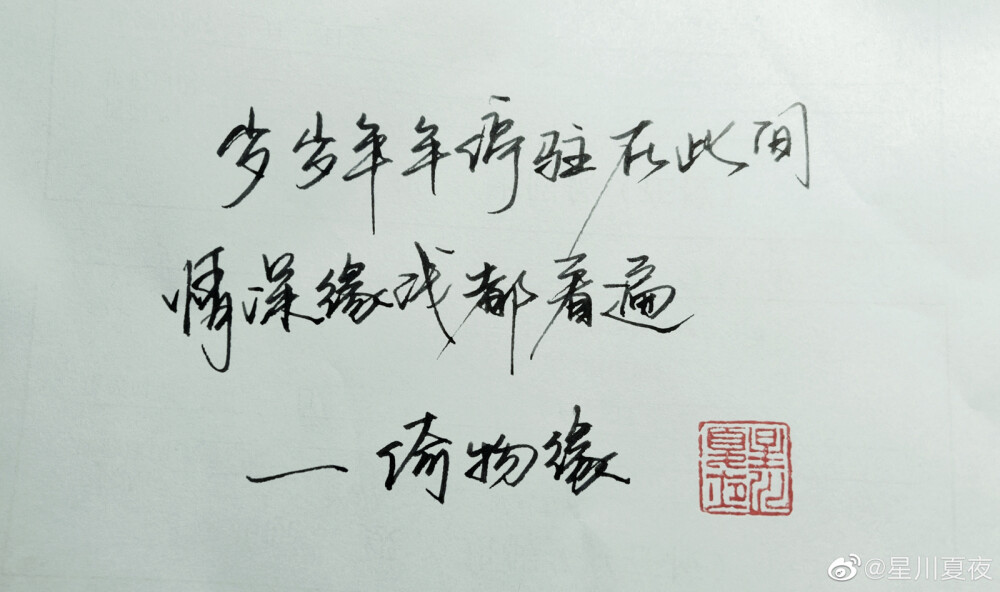 岁岁年年停驻在此间
情深缘浅都看遍
一倚物缘
星川夏夜
@星川夏夜